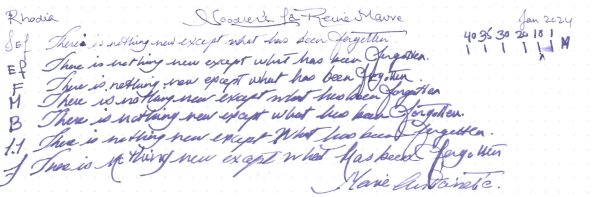 Rhodia Noodler's La Reine Mauve Jan 2024
40 35 30 20 10 1 M
Sef There is nothing new except what has been forgotten.
EF There is nothing new except what has been forgotten.
F There is nothing new except what has been forgotten.
M There is nothing new except what has been forgotten
B There is nothing new except what has been forgotten.
1.1 There is nothing new except what has been forgotten.
J There is nothing new except what has been forgotten
Marie Antoinette.